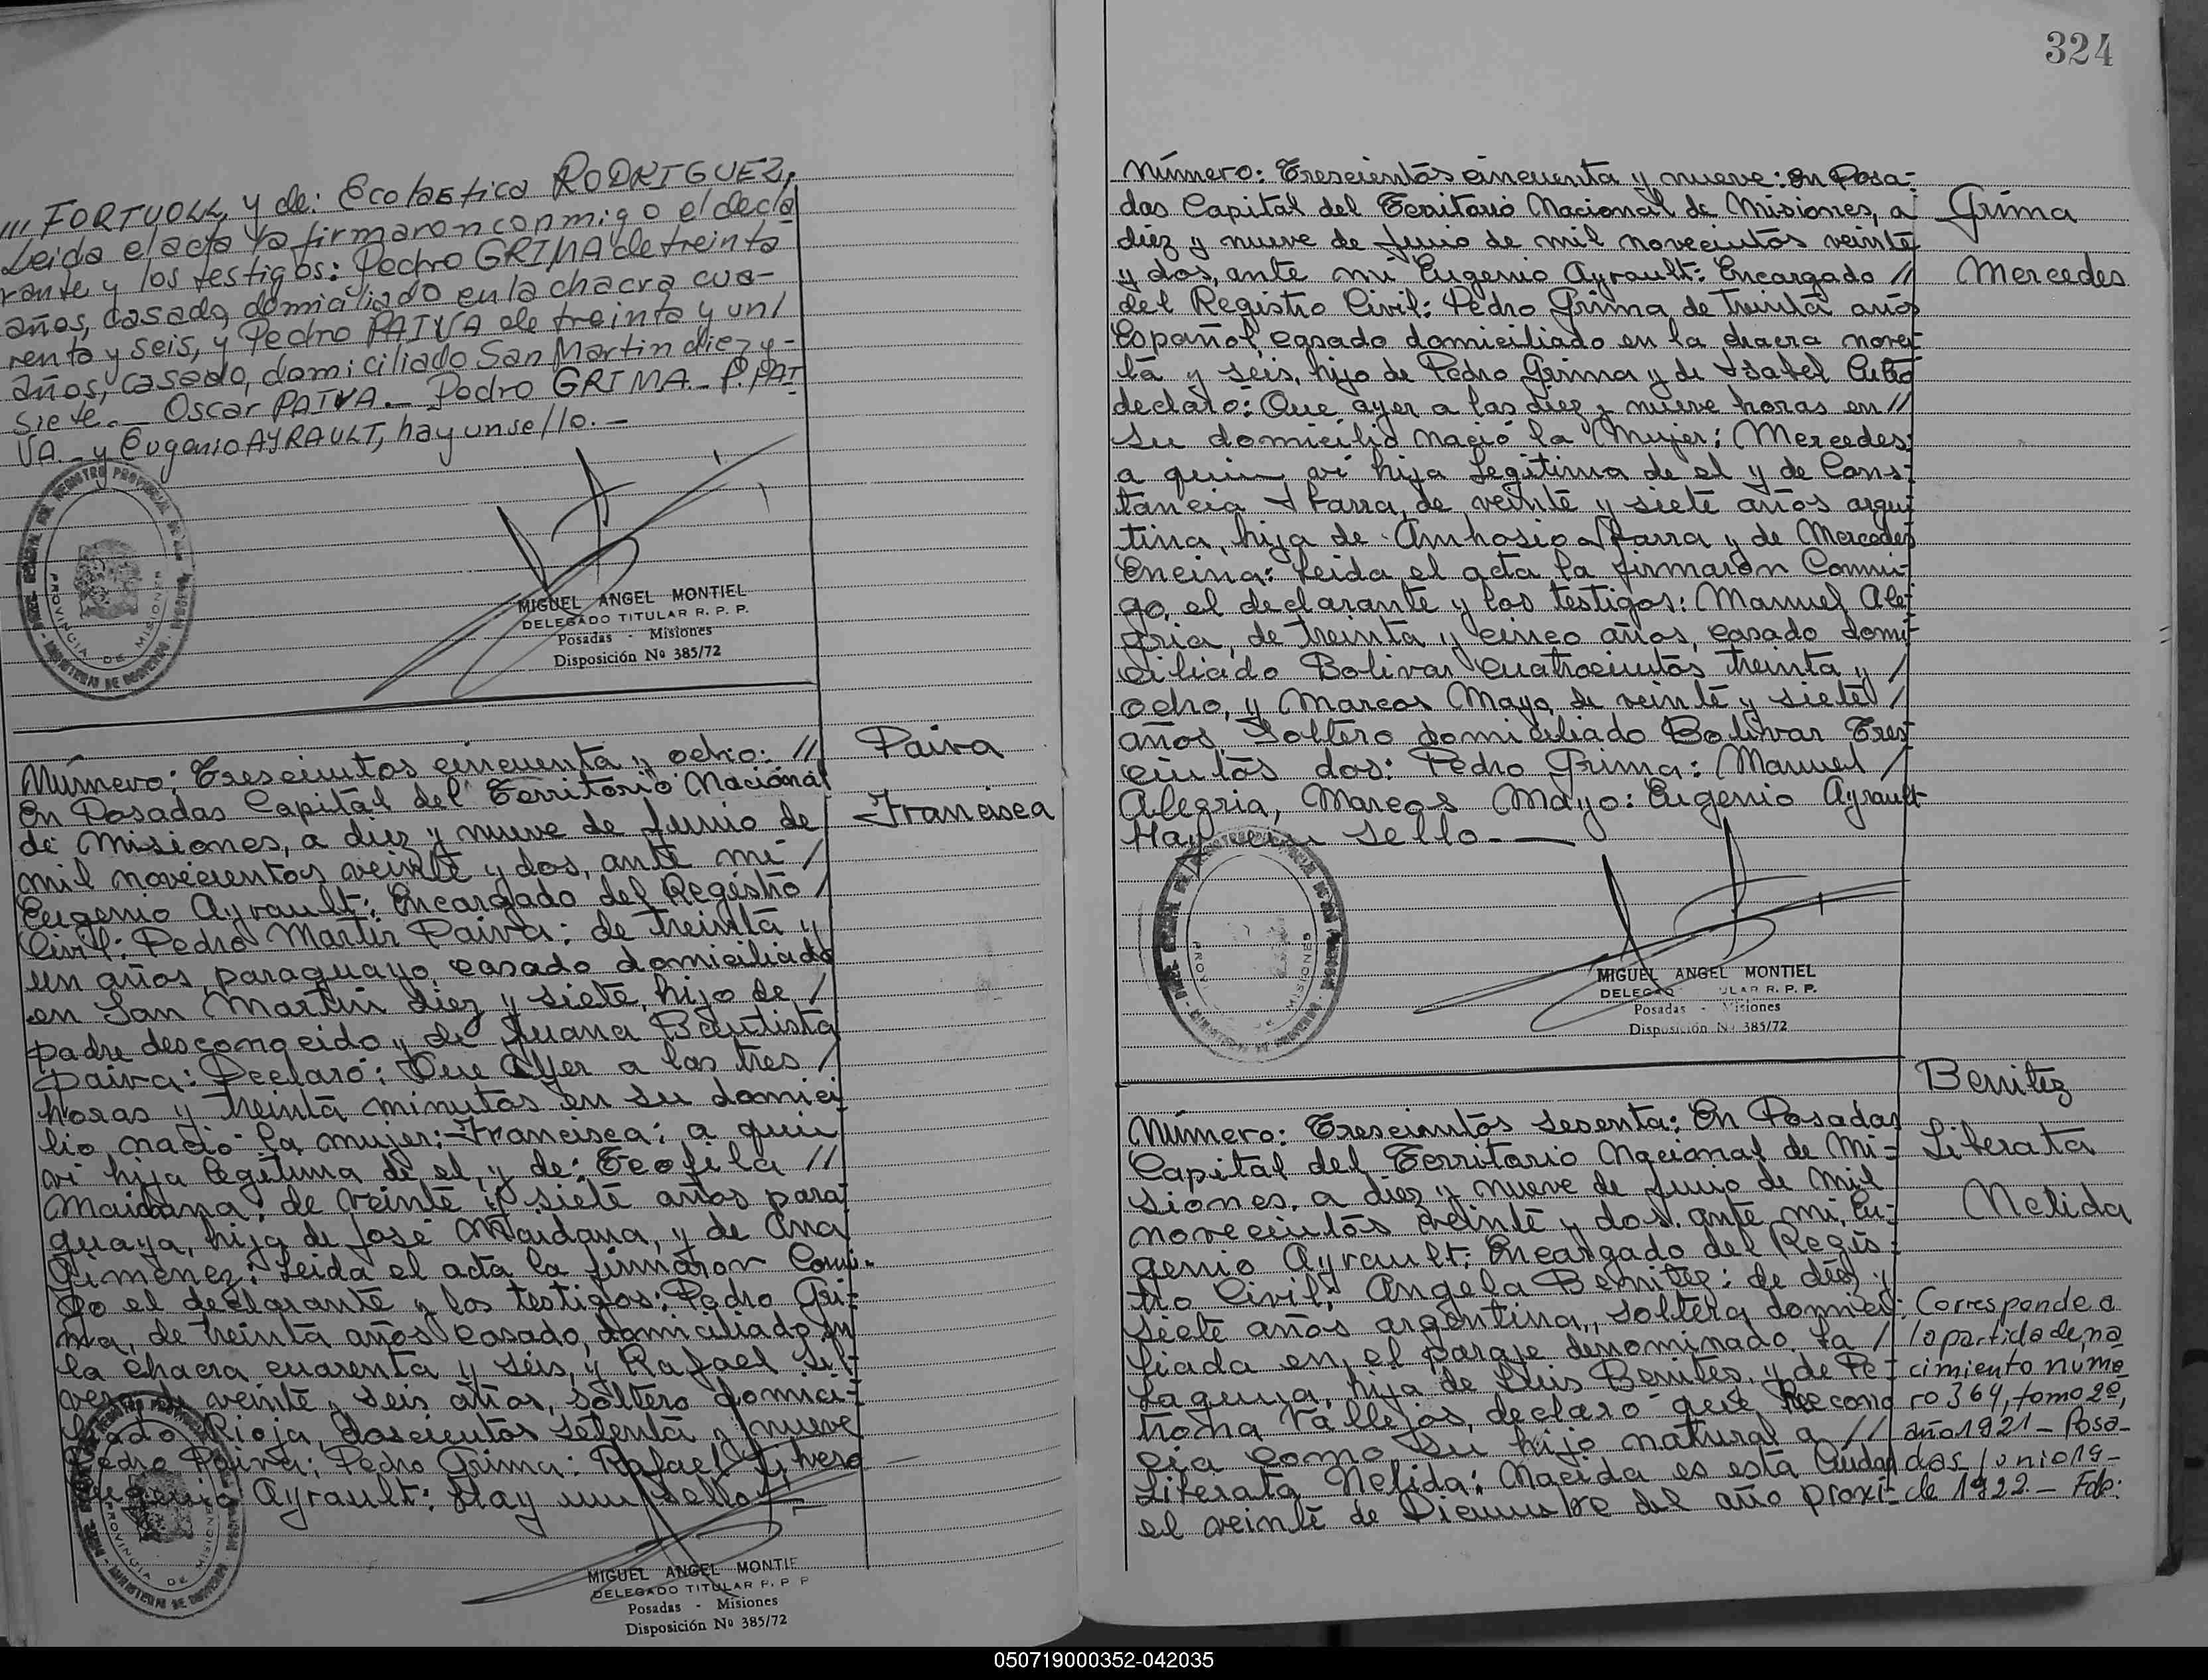 /// FORTUOLL, y de: Ecolastica RODRIGUEZ,
Leida el acta la firmaron conmigo el decla
rante y los testigos: Pedro GRIMA de treinta
años, casado, domiciliado en la chacra cua-
renta y seis, y Pedro PAIVA de treinta y un/
años, casado, domiciliado San Martin diez y-
siete.- Oscar PAIVA.- Pedro GRIMA.- P. PAI
VA.- y Eugenio AYRAULT, hay un sello.-
MIGUEL ANGEL MONTIEL
DELEGADO TITULAR R. P. P.
Posadas - Misiones
Disposición Nº 385/72
PROVINCIA DE MISIONES
Paiva
Francisca
Número: Trescientos cincuenta y ocho: //
En Posadas Capital del Territorio Nacional
de Misiones, a diez y nueve de Junio de
mil novecientos veinte y dos, ante mi /
Eugenio Ayrault: Encargado del Registro /
Civil: Pedro Martir Paiva: de treinta y
un años, paraguayo, casado domiciliado
en San Martin diez y siete, hijo de /
padre desconocido y de Juana Bautista
Paiva: Declaró: Que Ayer a las tres /
horas y treinta minutos en su domici
lio, nació la mujer: Francisca: a quien
vi hija legitima de el, y de: Teofila //
Maidana: de veinte y siete años para
guaya, hija de José Maidana, y de Ana
Gimenez: Leida el acta la firmaron Conmi-
go el declarante y los testigos: Pedro Gri-
ma, de treinta años casado, domiciliado en
la chacra cuarenta y seis, y Rafael Sil-
vero de veinte y seis años, soltero domici-
liado Rioja, doscientos setenta y nueve
Pedro Paiva: Pedro Grima: Rafael Silvero
Eugenio Ayrault: Hay un sello
MIGUEL ANGEL MONTIE
DELEGADO TITULAR R. P. P
Posadas - Misiones
Disposición Nº 385/72
324
Grima
Mercedes
Número: Trescientos cincuenta y nueve: En Posa-
das Capital del Territorio Nacional de Misiones, a
diez y nueve de Junio de mil novecientos veinte
y dos, ante mi Eugenio Ayrault: Encargado //
del Registro Civil: Pedro Grima, de treinta años
Español, casado domiciliado en la chacra noven
ta y seis, hijo de Pedro Grima y de Isabel
declaró: Que ayer a las diez y nueve horas en //
su domicilio nació la Mujer: Mercedes:
a quien vi hija Legitima de el y de Cons-
tancia Ibarra, de veinte y siete años argen
tina, hija de Ambrosio Ibarra y de Mercedes
Encina: Leida el acta la firmaron Conmi-
go, el declarante y los testigos: Manuel Ale-
gria, de treinta y cinco años, casado domi-
ciliado Bolivar cuatrocientos treinta y /
ocho, y Marcos Mayo de veinte y siete /
años, Soltero domiciliado Bolivar Tres-
cientos dos: Pedro Grima: Manuel /
Alegria, Marcos Mayo: Eugenio Ayrault
Hay un sello.-
MIGUEL ANGEL MONTIEL
DELEGADO TITULAR R. P. P.
Posadas - Misiones
Disposición Nº 385/72
Benitez
Literata
Nelida
Número: Trescientos sesenta: En Posadas
Capital del Territorio Nacional de Mi-
siones, a diez y nueve de Junio de Mil
novecientos veinte y dos, ante mi, Eu-
genio Ayrault: Encargado del Regis-
tro Civil: Angela Benitez: de diez y
siete años argentina, soltera domici-
liada en el paraje denominado La /
Laguna, hija de Luis Benites, y de Pe-
trona Vallejos, declaró que Recono
cia como su hijo natural a //
Literata Nelida: Nacida es esta Ciudad
el veinte de Diciembre del año proxi-
Corresponde a
la partida de na
cimiento núme
ro 364, tomo 2º,
año 1921 - Posa-
das Junio 19-
de 1922.- Fdo:
050719000352-042035